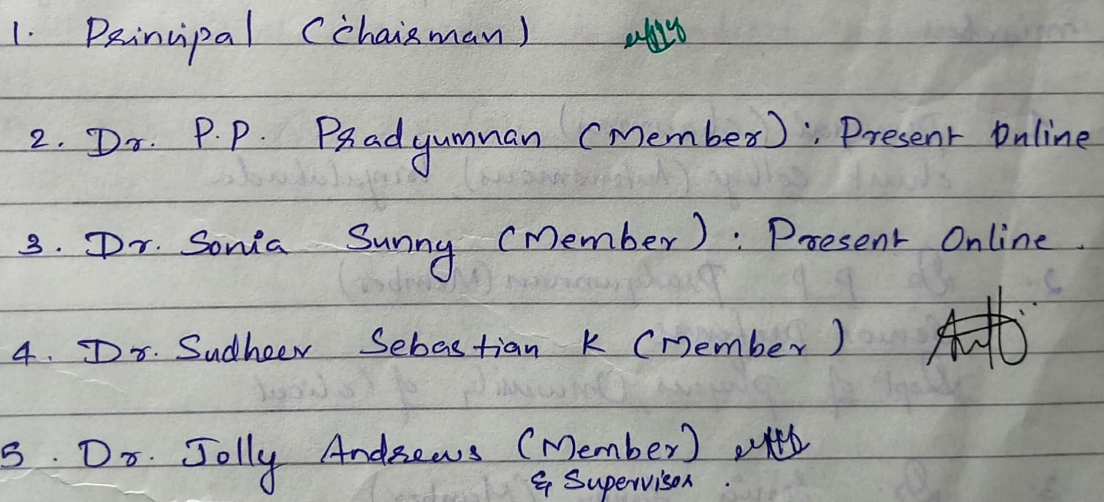 1. Principal (Chairman)
2. Dr. P.P. Pradyumnan (Member) : Present Online
3. Dr. Sonia Sunny (Member) : Present Online.
4. Dr. Sudheer Sebastian K (Member)
5. Dr. Jolly Andrews (Member)
& Supervisor.